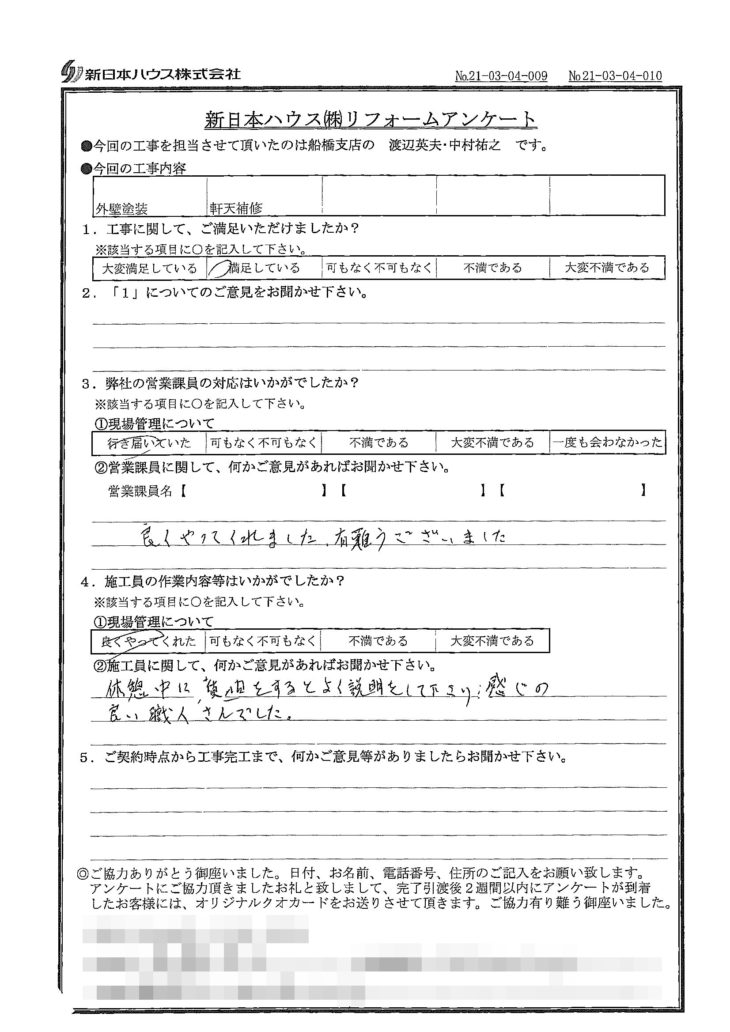 新日本ハウス株式会社 No.21-03-04-009 No.21-03-04-010
新日本ハウス㈱リフォームアンケート
●今回の工事を担当させて頂いたのは船橋支店の 渡辺英夫・中村祐之 です。
●今回の工事内容
外壁塗装 軒天補修
1．工事に関して、ご満足いただけましたか？
※該当する項目に○を記入して下さい。
大変満足している 満足している 可もなく不可もなく 不満である 大変不満である
2．「1」についてのご意見をお聞かせ下さい。
3．弊社の営業課員の対応はいかがでしたか？
※該当する項目に○を記入して下さい。
①現場管理について
行き届いていた 可もなく不可もなく 不満である 大変不満である 一度も会わなかった
②営業課員に関して、何かご意見があればお聞かせ下さい。
営業課員名【 】【 】【 】
良くやってくれました、有難うございました
4．施工員の作業内容等はいかがでしたか？
※該当する項目に○を記入して下さい。
①現場管理について
良くやってくれた 可もなく不可もなく 不満である 大変不満である
②施工員に関して、何かご意見があればお聞かせ下さい。
休憩中に質問をするとよく説明をして下さり、感じの
良い職人さんでした。
5．ご契約時点から工事完工まで、何かご意見等がありましたらお聞かせ下さい。
◎ご協力ありがとう御座いました。日付、お名前、電話番号、住所のご記入をお願い致します。
アンケートにご協力頂きましたお礼と致しまして、完了引渡後2週間以内にアンケートが到着
したお客様には、オリジナルクオカードをお送りさせて頂きます。ご協力有り難う御座いました。